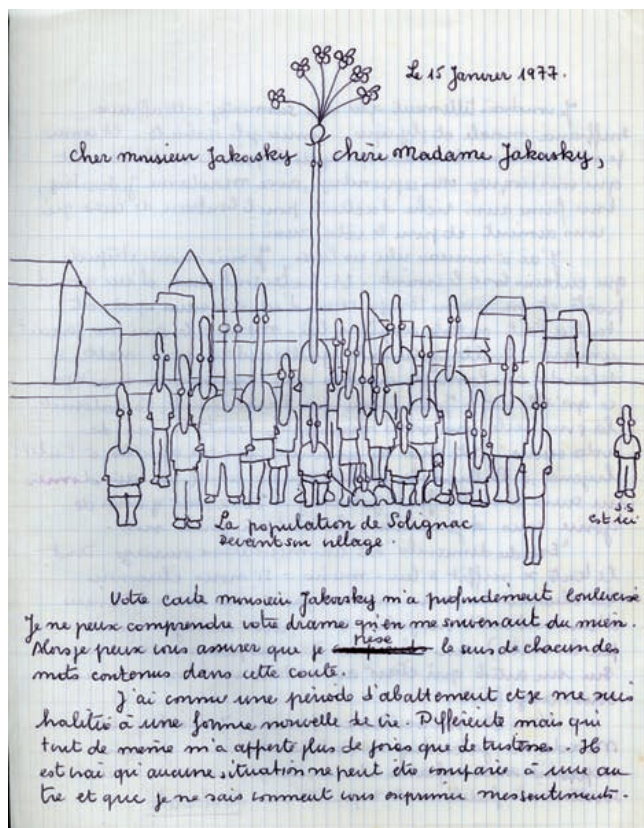 Le 15 Janvier 1977.
cher monsieur Jakovsky chère Madame Jakovsky,
J.S
est ici
La population de Solignac
devant son village.
Votre carte monsieur Jakovsky m'a profondément bouleversé
Je ne peux comprendre votre drame qu'en me souvenant du mien.
Alors je peux vous assurer que je pèse le sens de chacun des
mots contenus dans cette carte.
J'ai connu une période d'abattement et je me suis
habitué à une forme nouvelle de vie. Différente mais qui
tout de même m'a apporté plus de joies que de tristesses. Il
est vrai qu'aucune situation ne peut être comparée à une au
tre et que je ne sais comment vous exprimer mes sentiments.